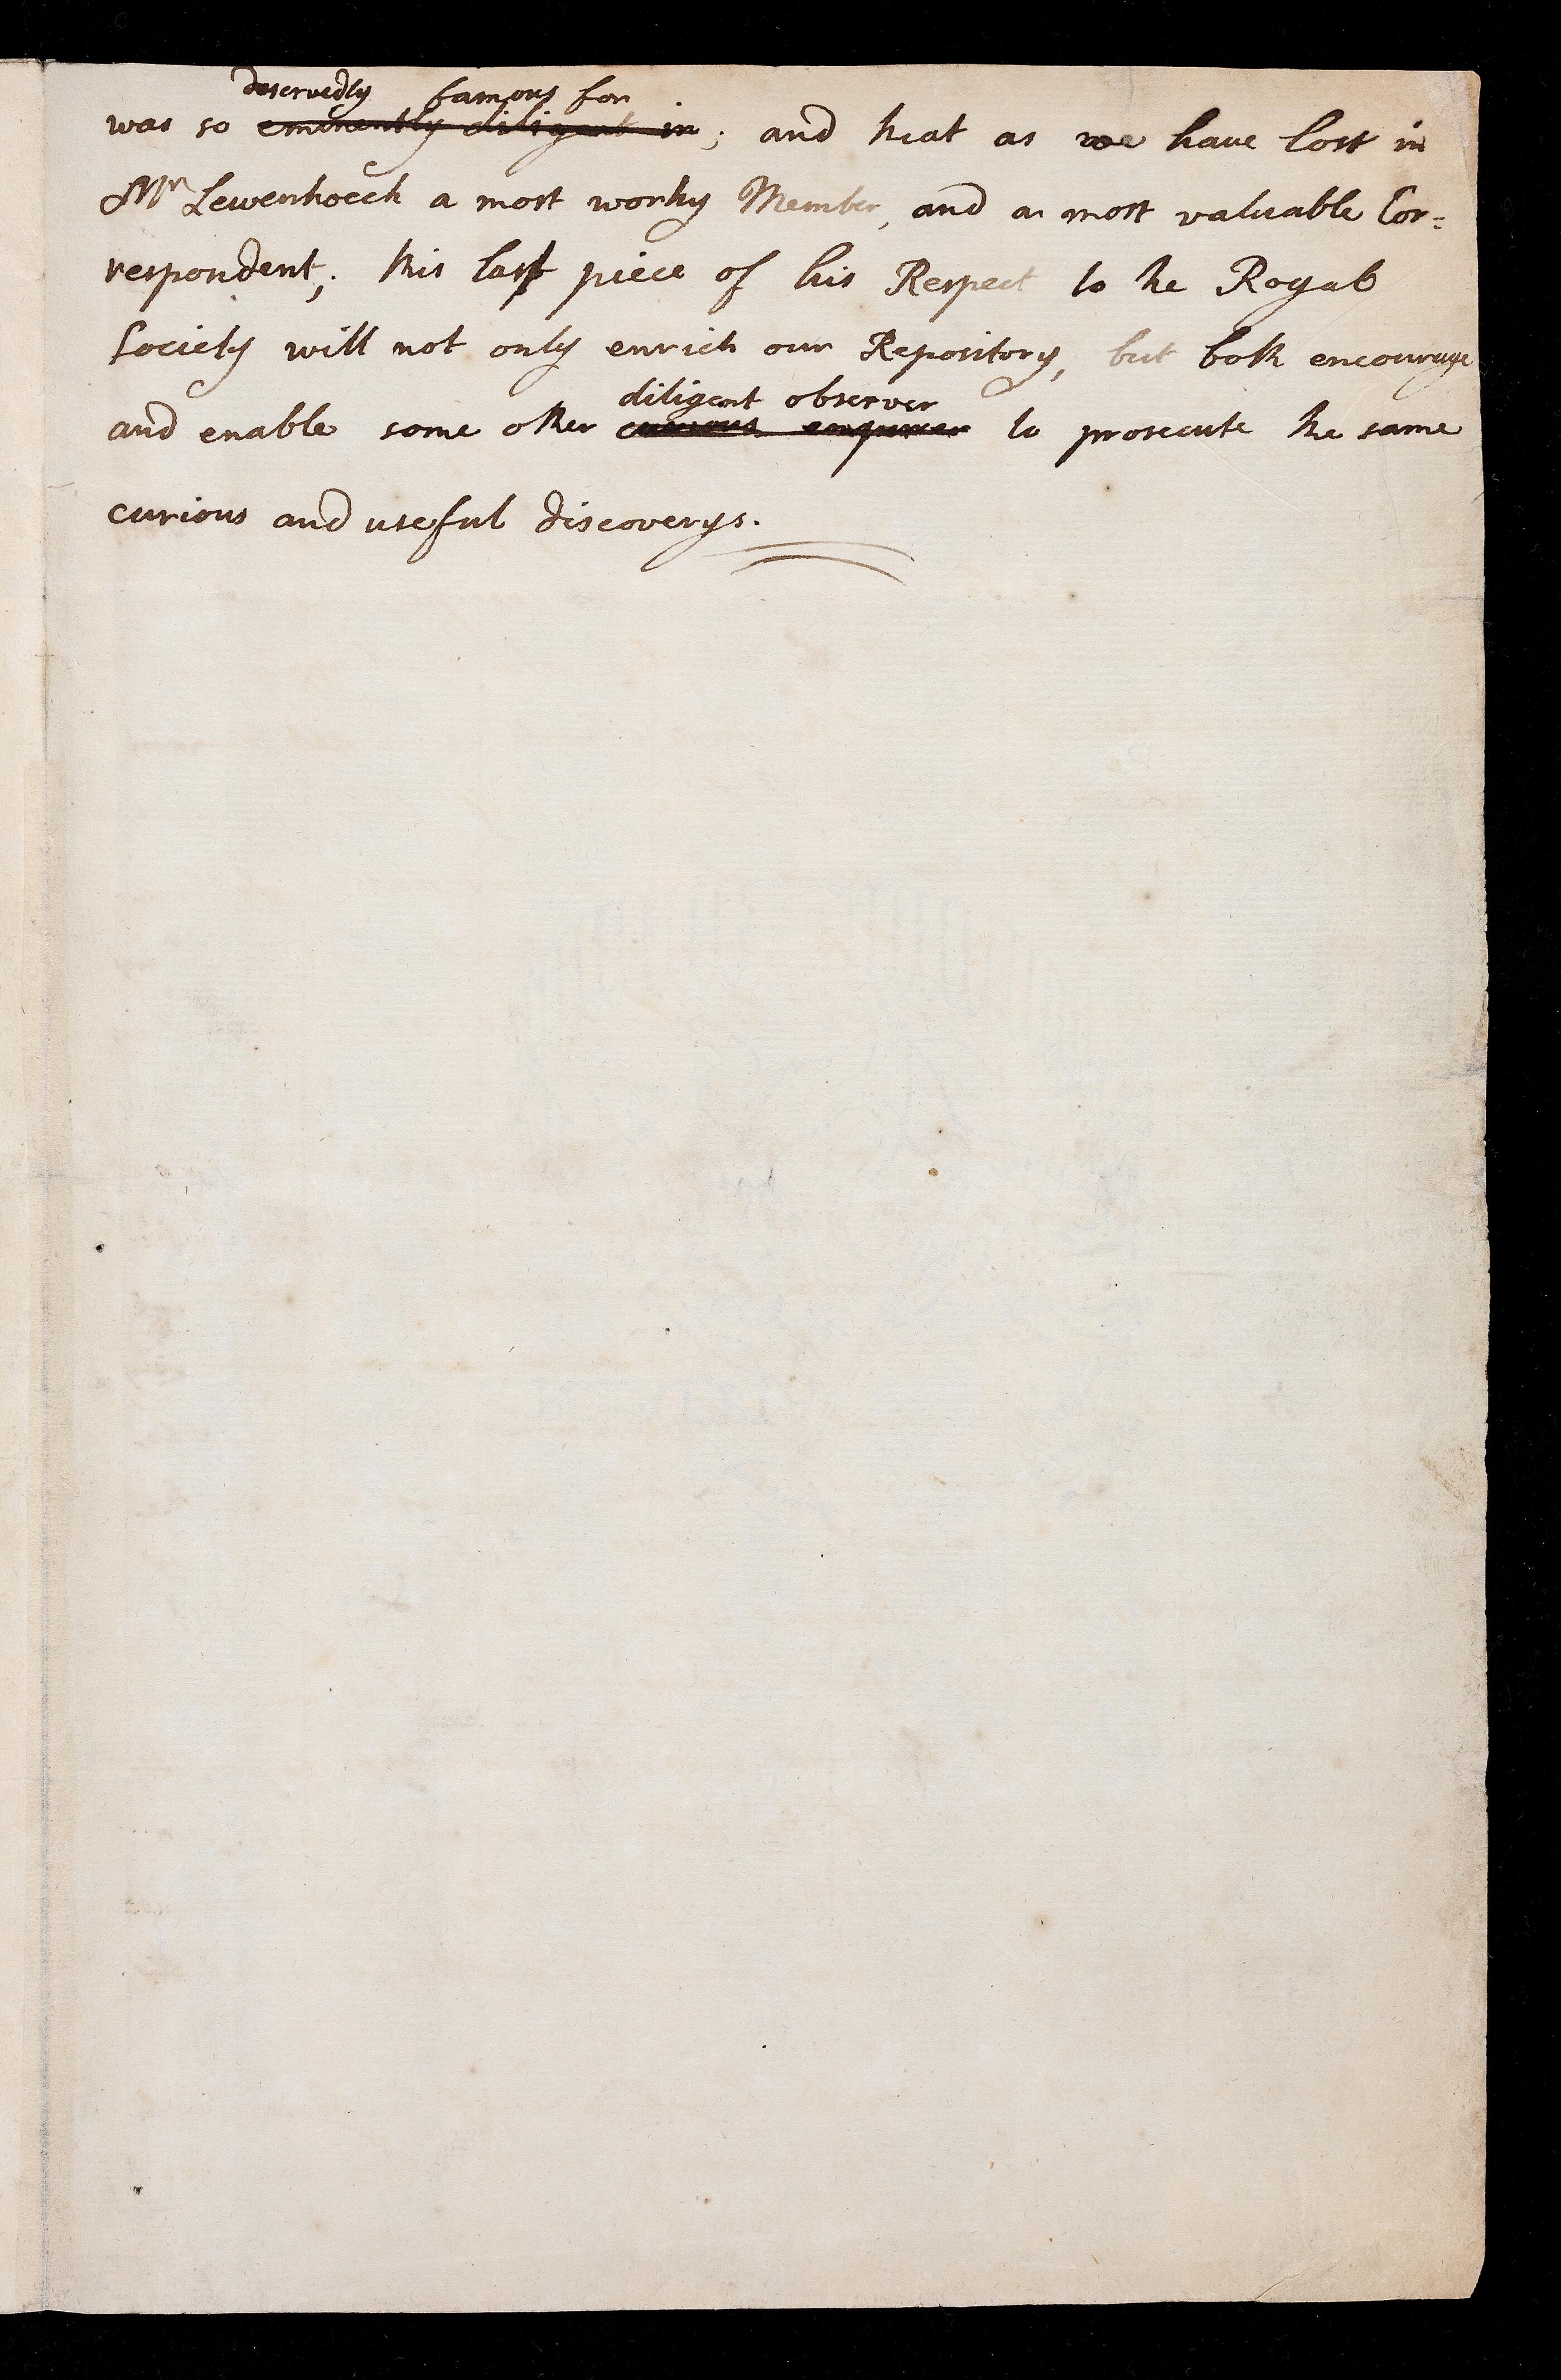 deservedly famous for
was so eminently diligent in; and that as we have lost in
Mr Lewenhoeck a most worthy Member, and a most valuable Cor=
respondent; this last piece of his Respect to the Royal
Society will not only enrich our Repository, but both encourage
diligent observer
and enable some other curious enquirer to prosecute the same
curious and useful discoverys.